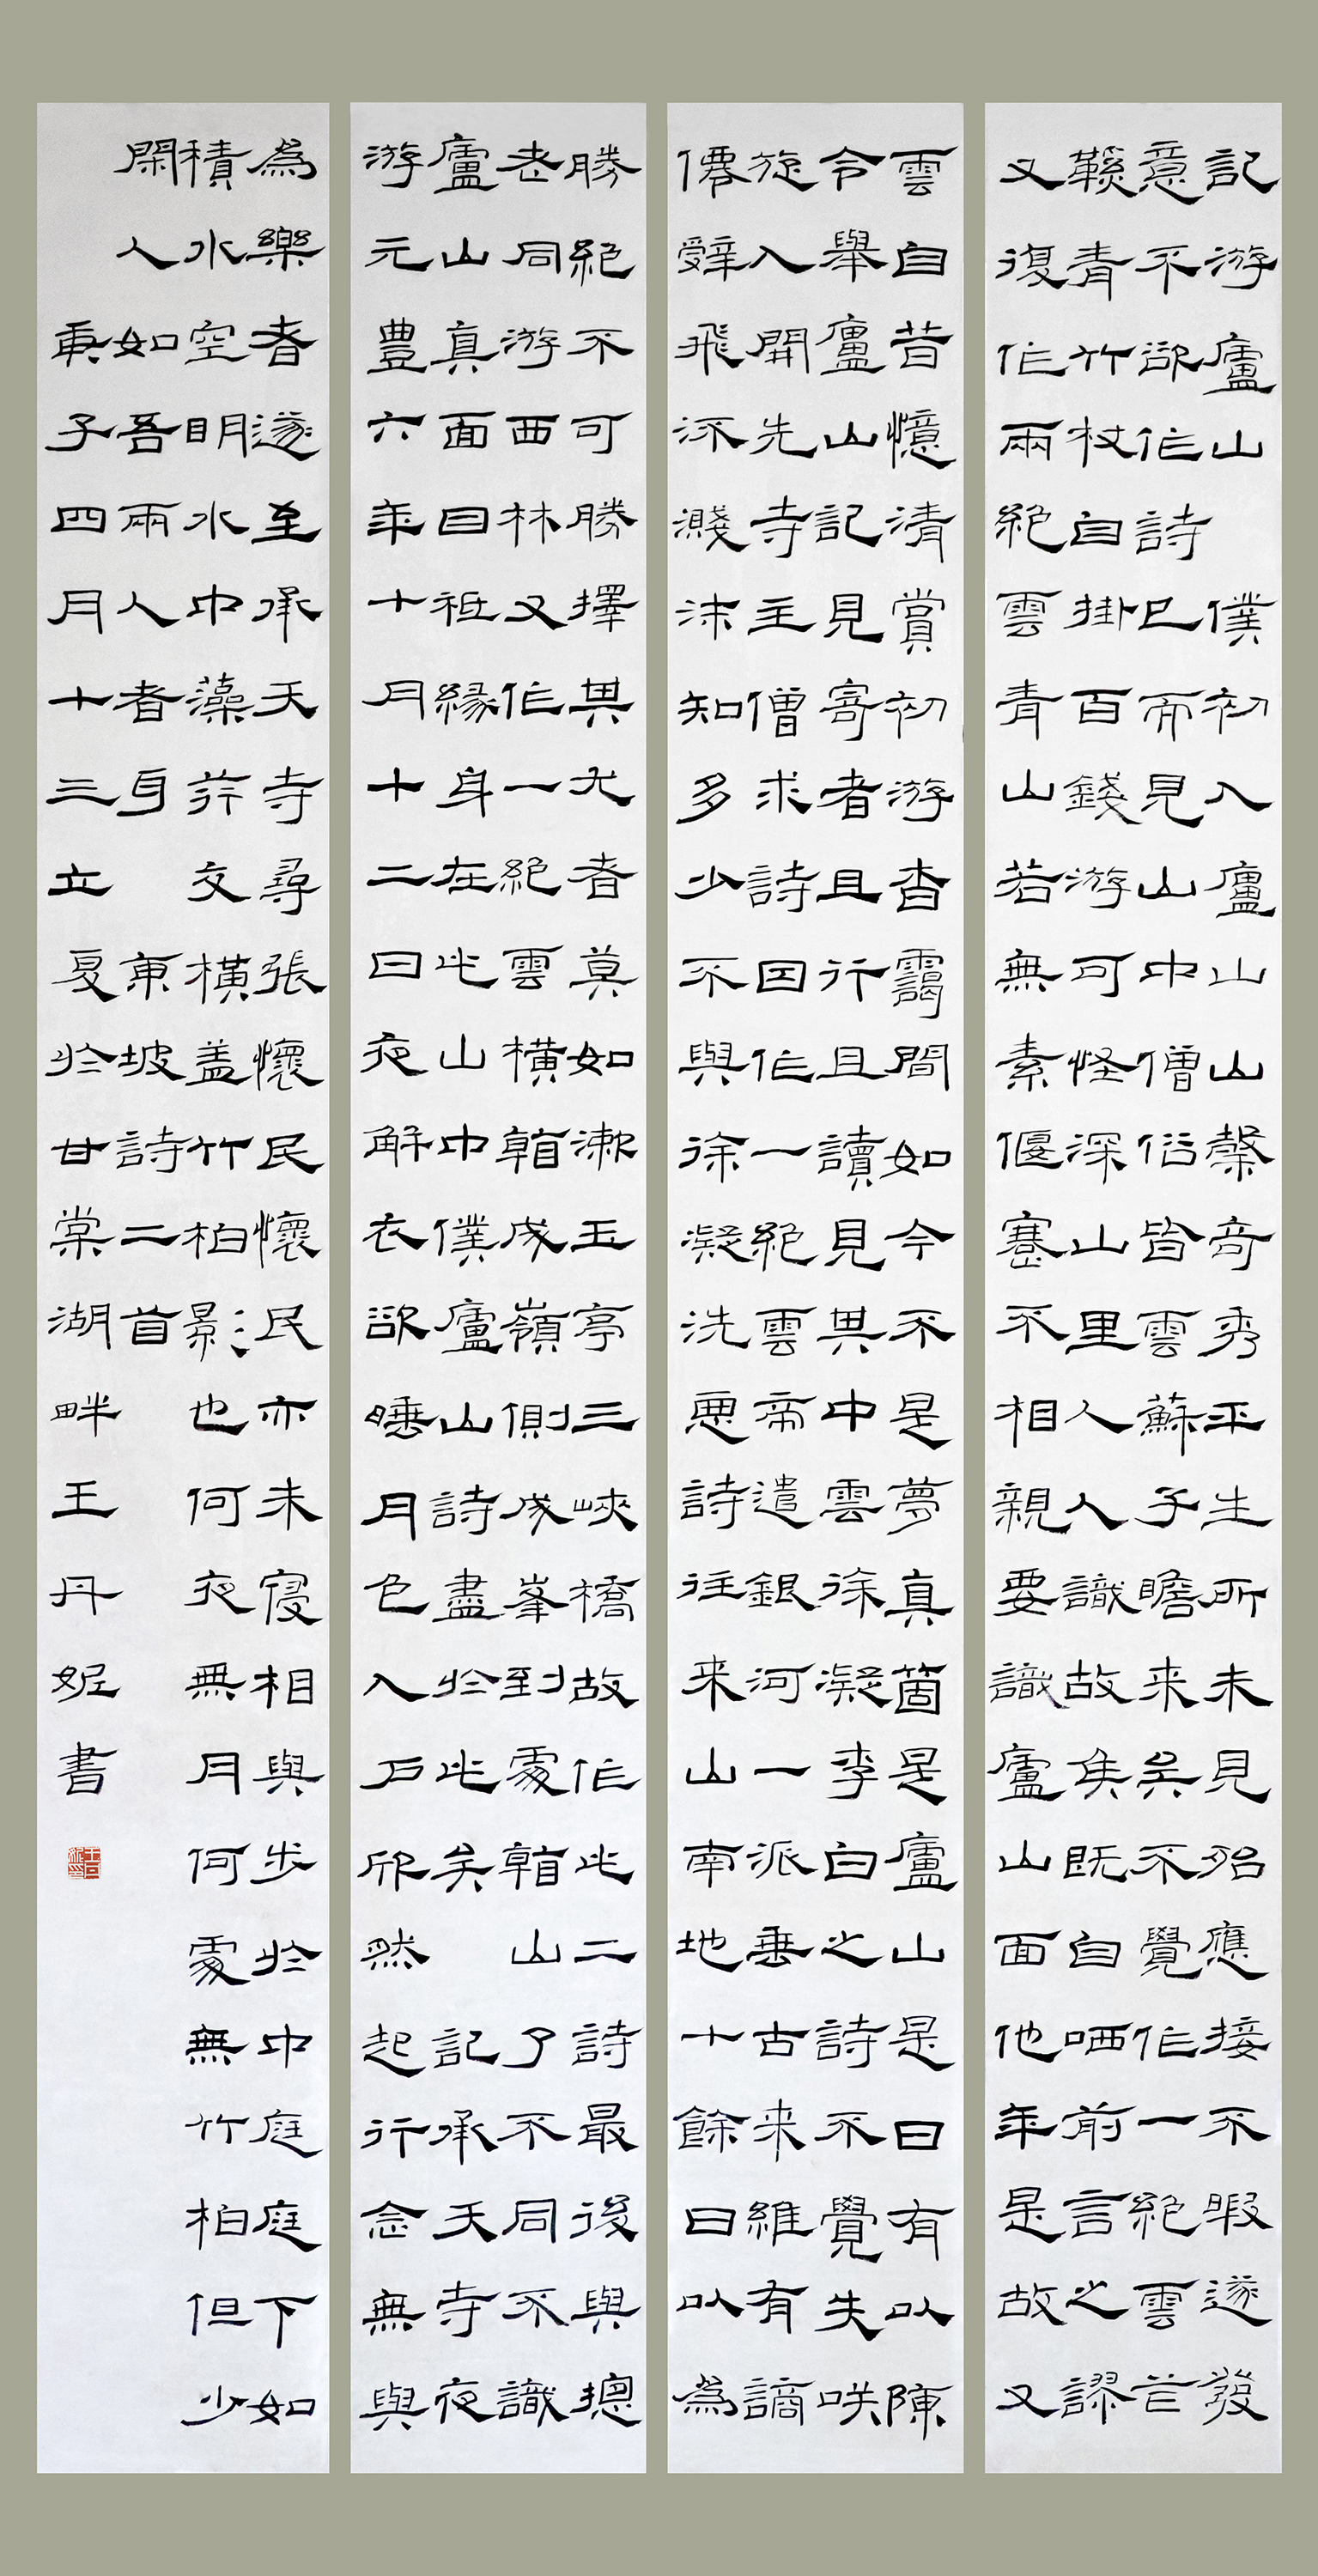 記游廬山　僕初入廬山山奇秀平生所未見殆應接不暇遂發
意不欲作詩已而見山中僧俗皆雲蘇子瞻来矣不覺作一絕雲芒
鞵青竹杖自掛百錢游可怪深山里人人識故侯既自哂前言之謬
又復作兩絕雲青山若無素偃蹇不相親要識廬山面他年是故又
雲自昔憶清賞初游杳靄間如今不是夢真箇是廬山是日有以陳
令舉廬山記見寄者且行且讀見其中雲徐凝李白之詩不覺失咲
旋入開先寺主僧求詩因作一絕雲帝遣銀河一派垂古来維有謫
僊辤飛流濺沫知多少不與徐凝洗惡詩往来山南地十餘日以為
勝絕不可勝擇其尤者莫如漱玉亭三峽橋故作此二詩最後與摠
老同游西林又作一絕雲橫看成嶺側成峯到處看山了不同不識
廬山真面目衹緣身在此山中僕廬山詩盡於此矣　記承天寺夜
游元豐六年十月十二日夜解衣欲睡月色入户欣然起行念無與
為樂者遂至承天寺尋張懷民懷民亦未寢相與步於中庭庭下如
積水空明水中藻荇交橫盖竹柏影也何夜無月何處無竹柏但少
閑人如吾兩人者耳　東坡詩二首
庚子四月十三立夏於甘棠湖畔王丹妮書